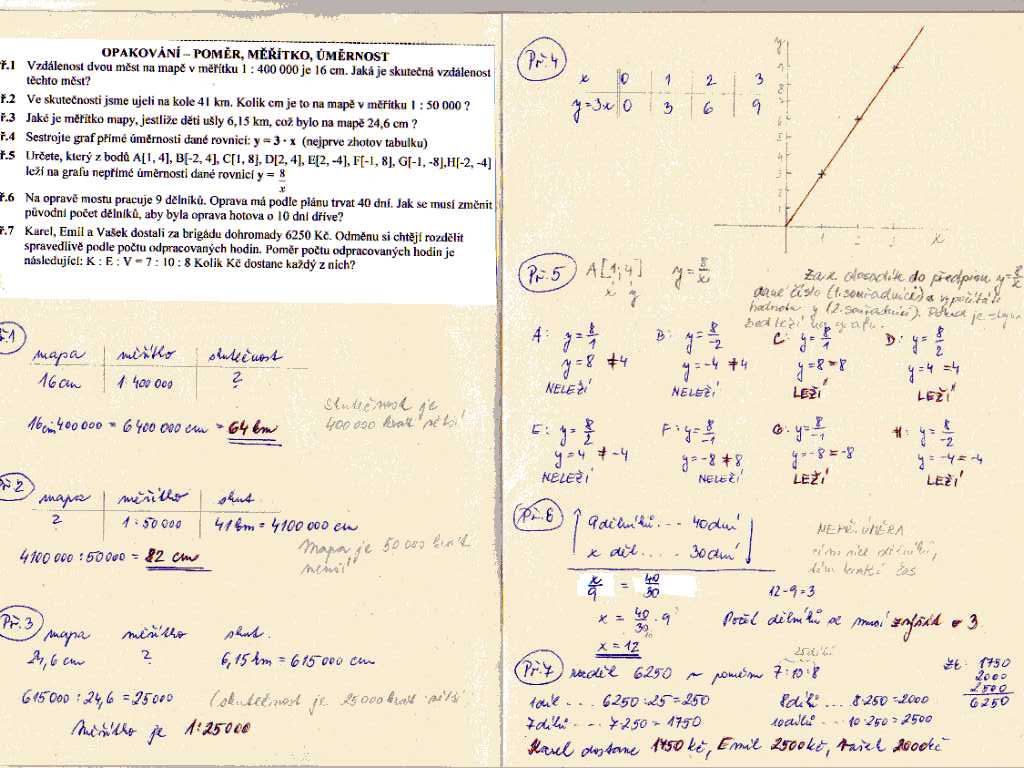 OPAKOVÁNÍ – POMĚR, MĚŘÍTKO, ÚMĚRNOST
ř.1 Vzdálenost dvou měst na mapě v měřítku 1 : 400 000 je 16 cm. Jaká je skutečná vzdálenost
těchto měst?
ř.2 Ve skutečnosti jsme ujeli na kole 41 km. Kolik cm je to na mapě v měřítku 1 : 50 000 ?
ř.3 Jaké je měřítko mapy, jestliže děti ušly 6,15 km, což bylo na mapě 24,6 cm ?
ř.4 Sestrojte graf přímé úměrnosti dané rovnicí: y = 3 · x (nejprve zhotov tabulku)
ř.5 Určete, který z bodů A[1, 4], B[-2, 4], C[1, 8], D[2, 4], E[2, -4], F[-1, 8], G[-1, -8],H[-2, -4]
leží na grafu nepřímé úměrnosti dané rovnicí y = 8/x
ř.6 Na opravě mostu pracuje 9 dělníků. Oprava má podle plánu trvat 40 dní. Jak se musí změnit
původní počet dělníků, aby byla oprava hotova o 10 dní dříve?
ř.7 Karel, Emil a Vašek dostali za brigádu dohromady 6250 Kč. Odměnu si chtějí rozdělit
spravedlivě podle počtu odpracovaných hodin. Poměr počtu odpracovaných hodin je
následující: K : E : V = 7 : 10 : 8 Kolik Kč dostane každý z nich?
ř.1
mapa měřítko skutečnost
16 cm 1:400 000 ?
Skutečnost je
400 000 krát větší
16cm·400 000 = 6 400 000 cm = 64 km
Př.2
mapa měřítko skut.
? 1:50 000 41 km = 4100 000 cm
Mapa je 50 000 krát
menší
4100 000 : 50 000 = 82 cm
Př.3
mapa měřítko skut.
24,6 cm ? 6,15 km = 615 000 cm
615 000 : 24,6 = 25000 (skutečnost je 25000 krát větší
Měřítko je 1:25000
Př.4
x 0 1 2 3
y=3x 0 3 6 9
y
9
8
7
6
5
4
3
2
1
1 2 3 x
Př.5 A[1;4] y = 8/x
x y
Za x dosadík do předpisu y = 8/x
dané číslo (1. souřadnici) a vypočítáš
hodnotu y (2. souřadnici). Pokud je
bod leží na grafu.
A: y = 8/1 B: y = 8/-2 C: y = 8/1 D: y = 8/2
y = 8 ≠ 4 y = -4 ≠ 4 y = 8 = 8 y = 4 = 4
NELEŽÍ NELEŽÍ LEŽÍ LEŽÍ
E: y = 8/2 F: y = 8/-1 G: y = 8/-1 H: y = 8/-2
y = 4 ≠ -4 y = -8 ≠ 8 y = -8 = -8 y = -4 = -4
NELEŽÍ NELEŽÍ LEŽÍ LEŽÍ
Př.6 9 dělníků ... 40 dní
x děl. ... 30 dní
NEPŘ. ÚMĚRA
čím více dělníků,
tím kratší čas
x/9 = 40/30 12-9=3
x = 40/30 · 9 Počet dělníků se musí zvýšit o 3.
x = 12
25 dílů
Př.7 rozděl 6250 v poměru 7:10:8
1 díl ... 6250 : 25 = 250 8 dílů ... 8·250 = 2000
7 dílů ... 7·250 = 1750 10 dílů ... 10·250 = 2500
Zk: 1750
2000
2500
6250
Karel dostane 1750 Kč, Emil 2500 Kč, Vašek 2000 Kč